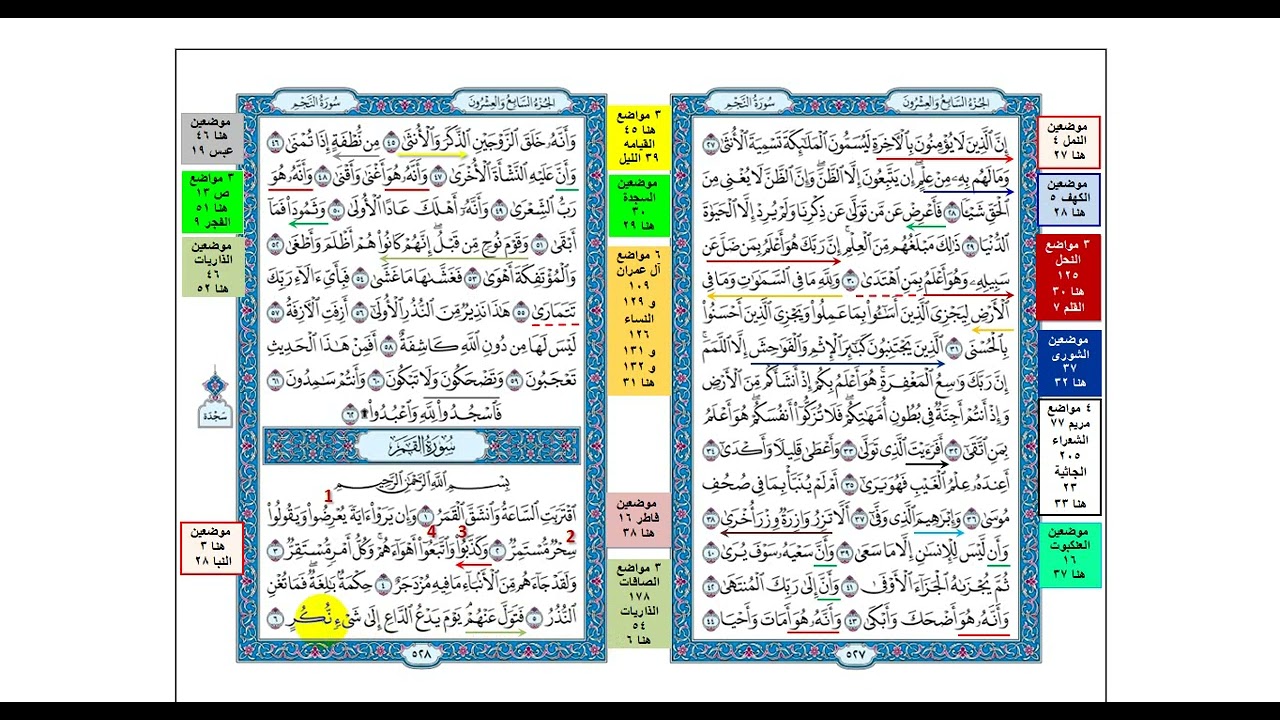 الجزء السابع والعشرون
سورة النجم
إِنَّ الَّذِينَ لَا يُؤْمِنُونَ بِالْآخِرَةِ لَيُسَمُّونَ الْمَلَائِكَةَ تَسْمِيَةَ الْأُنثَىٰ ٢٧
وَمَا لَهُم بِهِ مِنْ عِلْمٍ إِن يَتَّبِعُونَ إِلَّا الظَّنَّ وَإِنَّ الظَّنَّ لَا يُغْنِي مِنَ
الْحَقِّ شَيْئًا ٢٨ فَأَعْرِضْ عَن مَّن تَوَلَّىٰ عَن ذِكْرِنَا وَلَمْ يُرِدْ إِلَّا الْحَيَاةَ
الدُّنْيَا ٢٩ ذَٰلِكَ مَبْلَغُهُم مِّنَ الْعِلْمِ إِنَّ رَبَّكَ هُوَ أَعْلَمُ بِمَن ضَلَّ عَن
سَبِيلِهِ وَهُوَ أَعْلَمُ بِمَنِ اهْتَدَىٰ ٣٠ وَلِلَّهِ مَا فِي السَّمَاوَاتِ وَمَا فِي
الْأَرْضِ لِيَجْزِيَ الَّذِينَ أَسَاءُوا بِمَا عَمِلُوا وَيَجْزِيَ الَّذِينَ أَحْسَنُوا
بِالْحُسْنَى ٣١ الَّذِينَ يَجْتَنِبُونَ كَبَائِرَ الْإِثْمِ وَالْفَوَاحِشَ إِلَّا اللَّمَمَ
إِنَّ رَبَّكَ وَاسِعُ الْمَغْفِرَةِ هُوَ أَعْلَمُ بِكُمْ إِذْ أَنشَأَكُم مِّنَ الْأَرْضِ
وَإِذْ أَنتُمْ أَجِنَّةٌ فِي بُطُونِ أُمَّهَاتِكُمْ فَلَا تُزَكُّوا أَنفُسَكُمْ هُوَ أَعْلَمُ
بِمَنِ اتَّقَىٰ ٣٢ أَفَرَأَيْتَ الَّذِي تَوَلَّىٰ ٣٣ وَأَعْطَىٰ قَلِيلًا وَأَكْدَىٰ ٣٤
أَعِندَهُ عِلْمُ الْغَيْبِ فَهُوَ يَرَىٰ ٣٥ أَمْ لَمْ يُنَبَّأْ بِمَا فِي صُحُفِ
مُوسَىٰ ٣٦ وَإِبْرَاهِيمَ الَّذِي وَفَّىٰ ٣٧ أَلَّا تَزِرُ وَازِرَةٌ وِزْرَ أُخْرَىٰ ٣٨
وَأَن لَّيْسَ لِلْإِنسَانِ إِلَّا مَا سَعَىٰ ٣٩ وَأَنَّ سَعْيَهُ سَوْفَ يُرَىٰ ٤٠
ثُمَّ يُجْزَاهُ الْجَزَاءَ الْأَوْفَىٰ ٤١ وَأَنَّ إِلَىٰ رَبِّكَ الْمُنتَهَىٰ ٤٢
وَأَنَّهُ هُوَ أَضْحَكَ وَأَبْكَىٰ ٤٣ وَأَنَّهُ هُوَ أَمَاتَ وَأَحْيَا ٤٤
٥٢٧
موضعين
النمل ٤
هنا ٢٧
موضعين
الكهف ٥
هنا ٢٨
٣ مواضع
النحل
١٢٥
هنا ٣٠
القلم ٧
موضعين
الشورى
٣٧
هنا ٣٢
٤ مواضع
مريم ٧٧
الشعراء
٢٠٥
الجاثية
٢٣
هنا ٣٣
موضعين
العنكبوت
١٦
هنا ٣٧
٣ مواضع
هنا ٤٥
القيامه
٣٩ الليل
موضعين
السجدة
٣٠
هنا ٢٩
٦ مواضع
آل عمران
١٠٩
و ١٢٩
النساء
١٢٦
و ١٣١
و ١٣٢
هنا ٣١
موضعين
فاطر ١٦
هنا ٣٨
٣ مواضع
الصافات
١٧٨
الذاريات
٥٤
هنا ٦
الجزء السابع والعشرون
سورة النجم
وَأَنَّهُ خَلَقَ الزَّوْجَيْنِ الذَّكَرَ وَالْأُنثَىٰ ٤٥ مِن نُّطْفَةٍ إِذَا تُمْنَىٰ ٤٦
وَأَنَّ عَلَيْهِ النَّشْأَةَ الْأُخْرَىٰ ٤٧ وَأَنَّهُ هُوَ أَغْنَىٰ وَأَقْنَىٰ ٤٨ وَأَنَّهُ هُوَ
رَبُّ الشِّعْرَىٰ ٤٩ وَأَنَّهُ أَهْلَكَ عَادًا الْأُولَىٰ ٥٠ وَثَمُودَ فَمَا
أَبْقَىٰ ٥١ وَقَوْمَ نُوحٍ مِّن قَبْلُ إِنَّهُمْ كَانُوا هُمْ أَظْلَمَ وَأَطْغَىٰ ٥٢
وَالْمُؤْتَفِكَةَ أَهْوَىٰ ٥٣ فَغَشَّاهَا مَا غَشَّىٰ ٥٤ فَبِأَيِّ آلَاءِ رَبِّكَ
تَتَمَارَىٰ ٥٥ هَٰذَا نَذِيرٌ مِّنَ النُّذُرِ الْأُولَىٰ ٥٦ أَزِفَتِ الْآزِفَةُ ٥٧
لَيْسَ لَهَا مِن دُونِ اللَّهِ كَاشِفَةٌ ٥٨ أَفَمِنْ هَٰذَا الْحَدِيثِ
تَعْجَبُونَ ٥٩ وَتَضْحَكُونَ وَلَا تَبْكُونَ ٦٠ وَأَنتُمْ سَامِدُونَ ٦١
فَاسْجُدُوا لِلَّهِ وَاعْبُدُوا ۩ ٦٢
سورة القمر
بِسْمِ اللَّهِ الرَّحْمَٰنِ الرَّحِيمِ
1
اقْتَرَبَتِ السَّاعَةُ وَانشَقَّ الْقَمَرُ ١ وَإِن يَرَوْا آيَةً يُعْرِضُوا وَيَقُولُوا
2 3 4
سِحْرٌ مُّسْتَمِرٌّ ٢ وَكَذَّبُوا وَاتَّبَعُوا أَهْوَاءَهُمْ وَكُلُّ أَمْرٍ مُّسْتَقِرٌّ ٣
وَلَقَدْ جَاءَهُم مِّنَ الْأَنبَاءِ مَا فِيهِ مُزْدَجَرٌ ٤ حِكْمَةٌ بَالِغَةٌ فَمَا تُغْنِ
النُّذُرُ ٥ فَتَوَلَّ عَنْهُمْ يَوْمَ يَدْعُ الدَّاعِ إِلَىٰ شَيْءٍ نُّكُرٍ ٦
٥٢٨
موضعين
هنا ٤٦
عبس ١٩
٣ مواضع
ص ١٣
هنا ٥١
الفجر ٩
موضعين
الذاريات
٤٦
هنا ٥٢
سجدة
موضعين
هنا ٣
النبا ٢٨